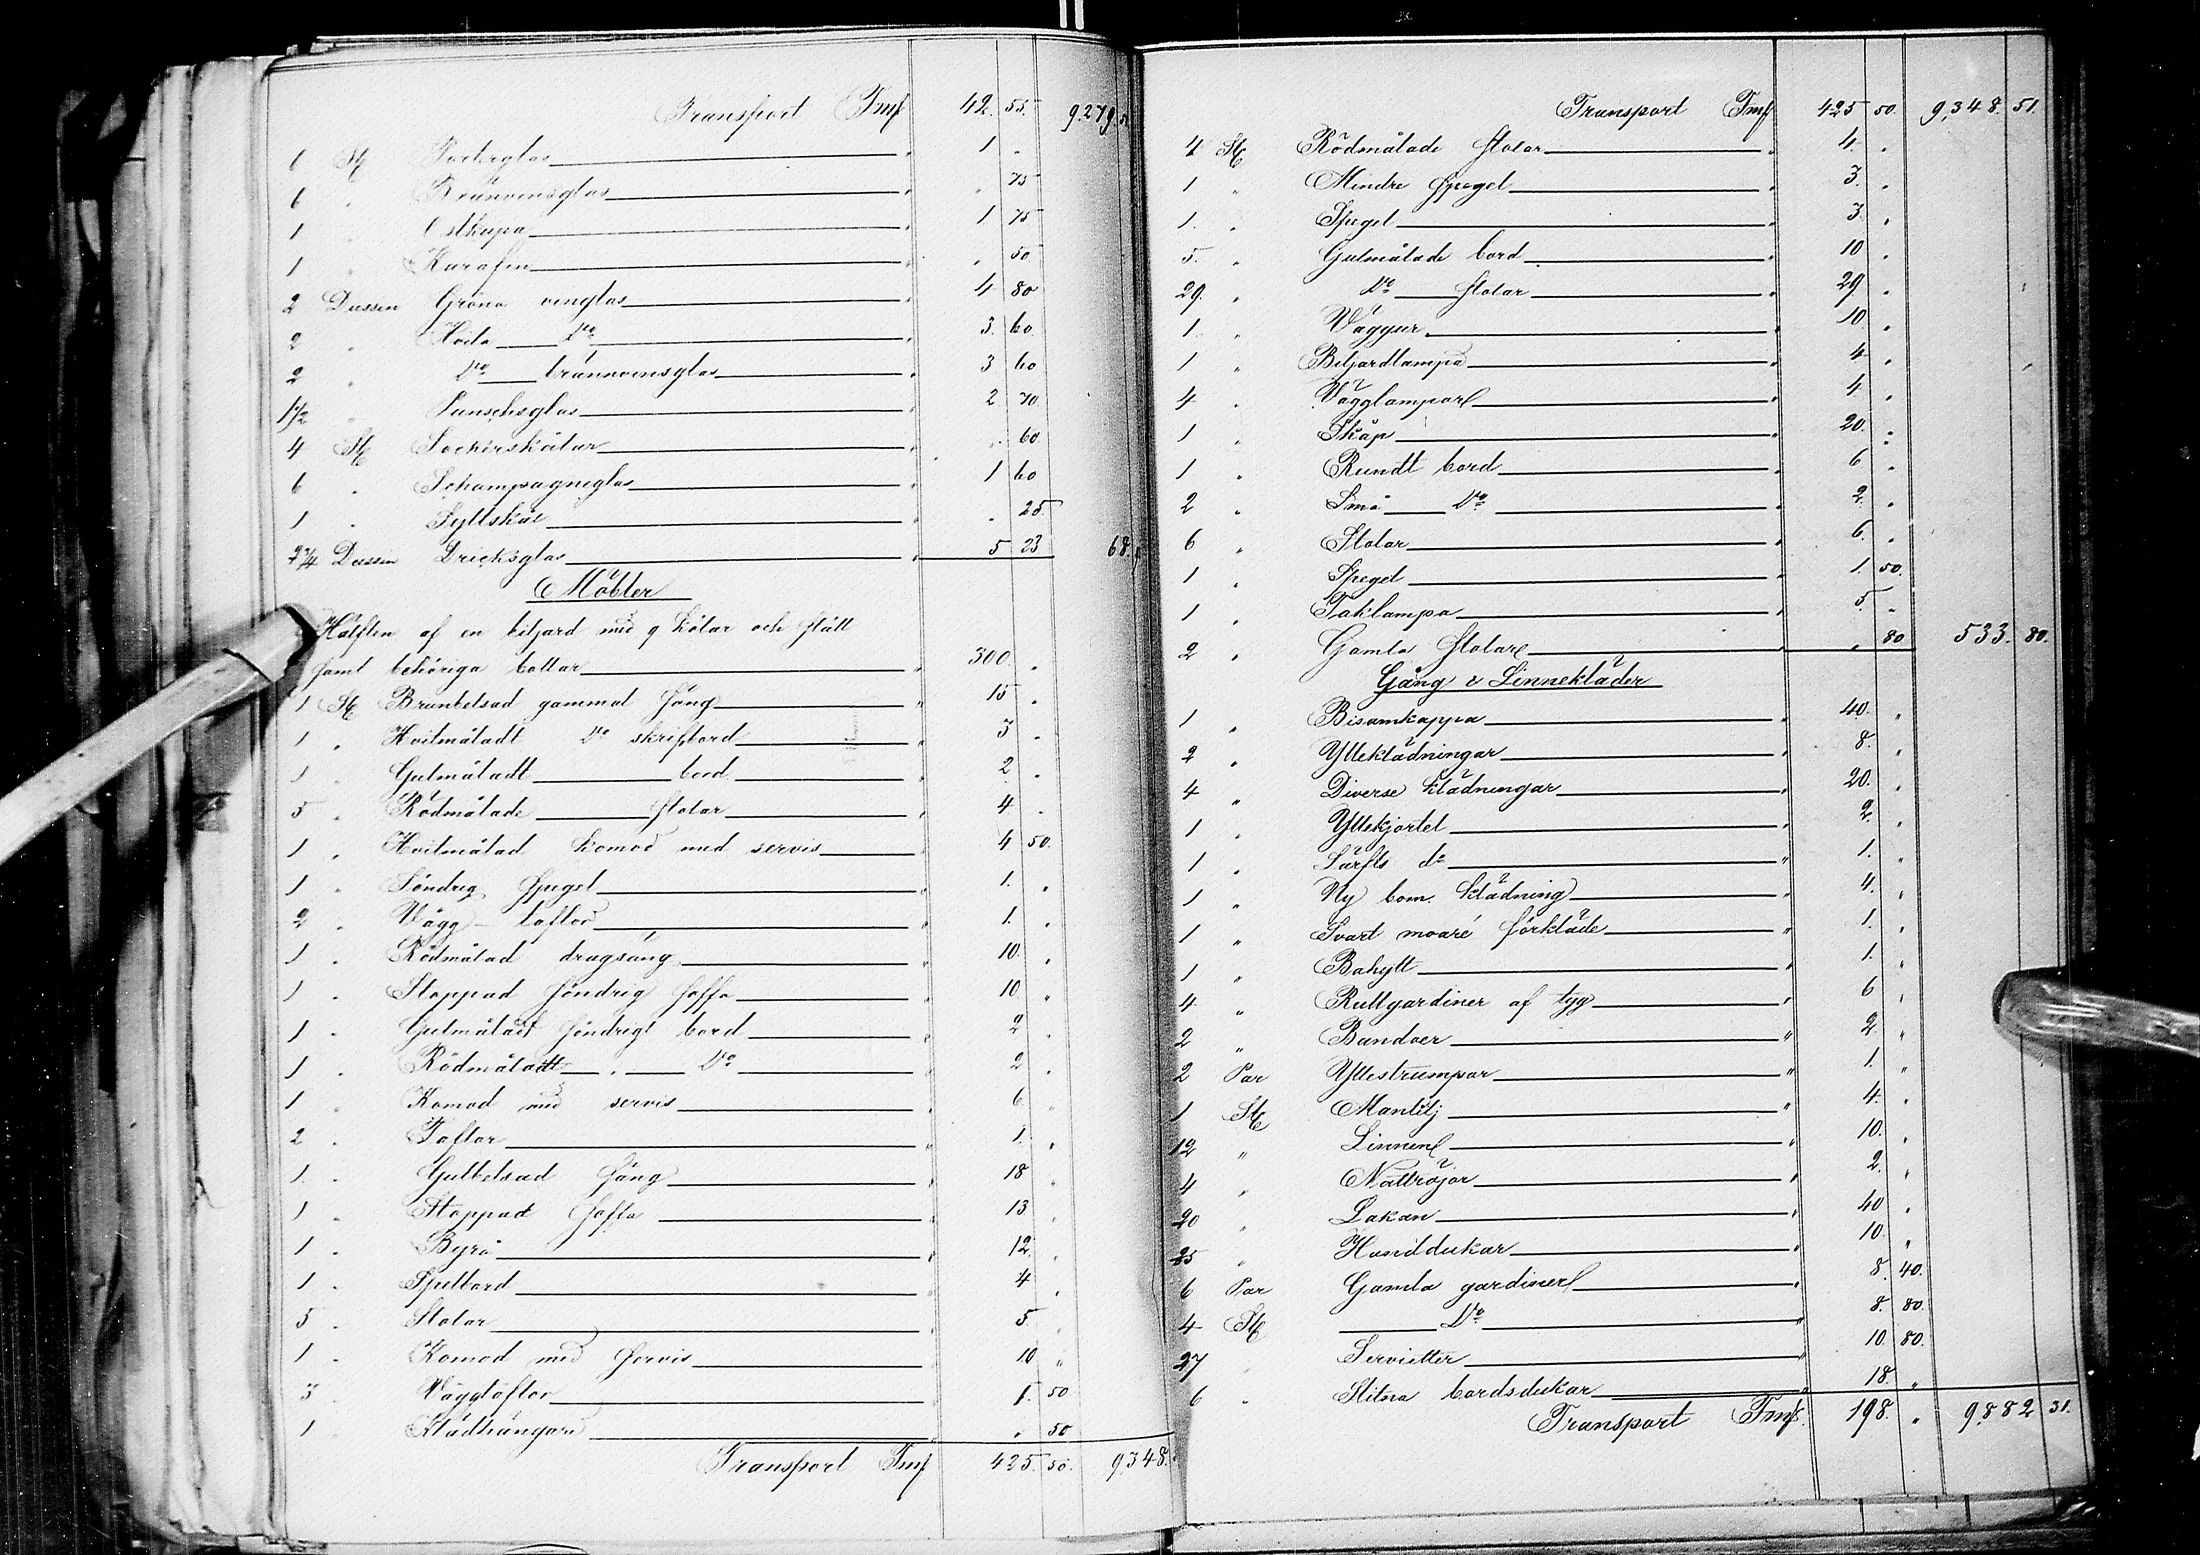 Transport Fmk 42. 55. 9.279.
6 St Porterglas " 1 "
6 " Bränvinsglas " " 75
1 " Ostkupa " 1 75
1 " Karafin " " 50
2 Dussin Gröna vinglas " 4 80
2 " Hvita Do " 3. 60
2 " Do brännvinsglas " 3 60
1 1/2 " Punschglas " 2 70
4 St Sockerskålar " " 60
6 " Schampagneglas " 1 60
1 " Syltskål " " 25
2 3/4 Dussin Dricksglas " 5 23 68.
Möbler
Hälften af en biljard med 9 kölar och ställ
jemt behöriga bollar " 300 "
1 St Brunbetsad gammal säng " 15 "
1 " Hvitmåladt Do skrifbord " 3 "
1 " Gulmåladt bord " 2 "
5 " Rödmålade stolar " 4 "
1 " Hvitmålad komod med servis " 4 50.
1 " Söndrig spegel " 1. "
2 " Vägg-taflor " 1. "
1 " Rödmålad dragsäng " 10. "
1 " Stoppad söndrig soffa " 10 "
1 " Gulmåladt söndrigt bord " 2 "
1 " Rödmåladt " Do " 2 "
1 " Komod med servis " 6 "
2 " Taflor " 1. "
1. " Gulbetsad säng " 18 "
1 " Stoppad soffa " 13 "
1 " Byrå " 12 "
1 " Spelbord " 4 "
5 " Stolar " 5 "
1 " Komod med servis " 10 "
3 " Väggtaflor " 1. 50
1 " Klädhängare " " 50
Transport Fmk 425. 50. 9,348.
Transport Fmk 425 50. 9,348. 51.
4 St Rödmålade stolar " 4. "
1 " Mindre spegel " 3. "
1. " Spegel " 3. "
5. " Gulmålade bord " 10 "
29. " Do stolar " 29 "
1. " Väggur " 10 "
1 " Biljardlampa " 4 "
4 " Vägglampor " 4 "
1 " Skåp " 20. "
1 " Rundt bord " 6 "
2 " Små Do " 2. "
6 " Stolar " 6. "
1 " Spegel " 1. 50.
1 " Taklampa " 5 "
2 " Gamla stolar " " 80 533. 80.
Gång & Linnekläder
1 " Bisamkappa " 40. "
2 " Ylleklädningar " 8. "
4 " Diverse klädningar " 20. "
1 " Yllekjortel " 2. "
1 " Särfts do " 1. "
1 " Ny bom. klädning " 4. "
1 " Svart moaré förkläde " 1. "
1 " Bahytt " 1. "
4 " Rullgardiner af tyg " 6 "
2 " Bandoer " 2. "
2 Par Yllestrumpor " 1. "
1 St Mantilj " 4. "
12 " Linnen " 10. "
4 " Nattröjor " 2. "
20 " Lakan " 40 "
25 " Handdukar " 10. "
6 Par Gamla gardiner " 8. 40.
4 St Do " 8. 80.
27 " Servietter " 10. 80.
6 " Slitna bordsdukar " 18. "
Transport Fmk. 198. " 9.882 31.